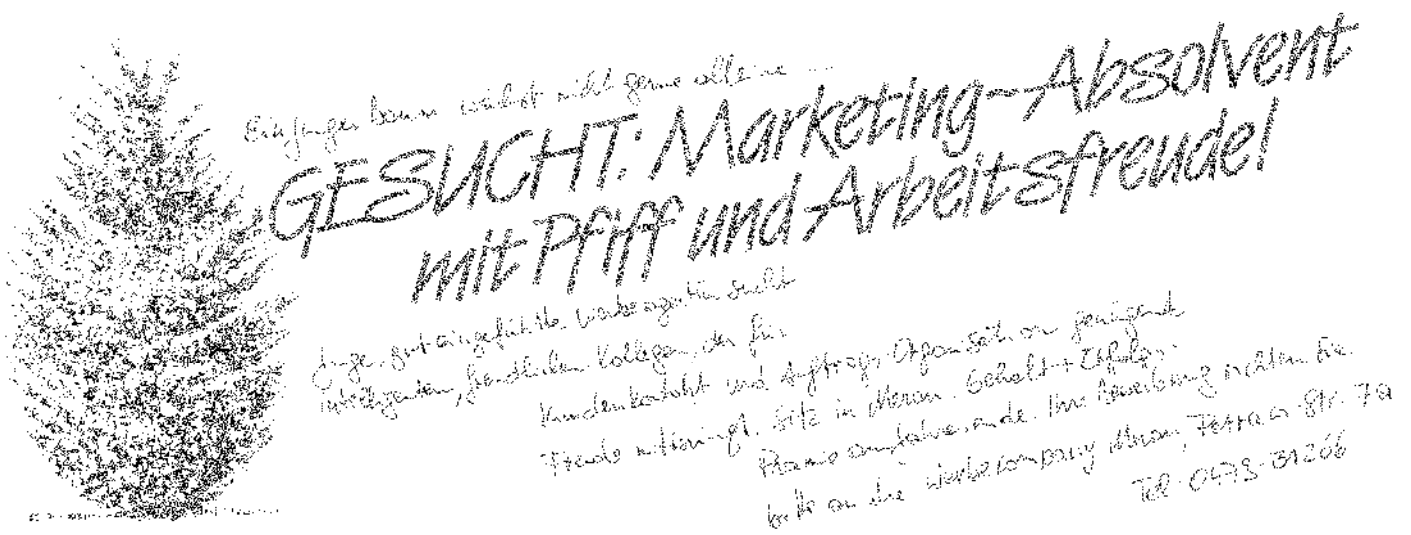 Ein junger baum wächst nicht gerne alleine ...
GESUCHT: Marketing-Absolvent
mit Pfiff und Arbeitsfreude!
Junge, gut eingeführte Werbeagentur sucht
intelligenten, freundlichen Kollegen, der für
Kundenkontakt und Auftrags-Organisation genügend
Freude mitbringt. Sitz in Meran. Gehalt + Erfolgs-
Prämie ... Ihre Bewerbung richten Sie
bitte an die werbecompany Meran, Str. 7a
Tel. 0473-31266